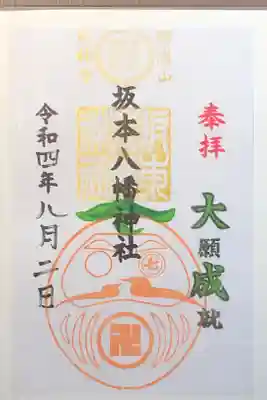 奉拝
大願成就
坂本八幡神社
七
卍
令和四年八月二日